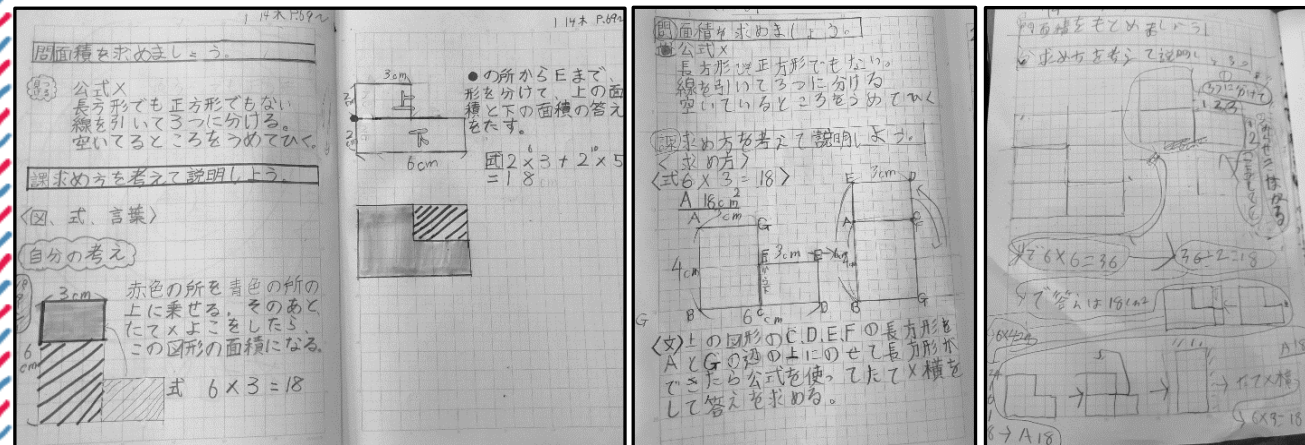 1 14木 P.69~
問面積を求めましょう。
見つける
公式×
長方形でも正方形でもない
線を引いて3つに分ける。
空いてるところをうめてひく。
課求め方を考えて説明しよう。
〈図、式、言葉〉
自分の考え
3cm
6cm
赤色の所を青色の所の
上に乗せる。そのあと、
たて×よこをしたら、
この図形の面積になる。
式 6×3=18
1 14木 P.69~
3cm
2cm
上
2cm
下
6cm
●の所からEまで、
形を分けて、上の面
積と下の面積の答え
をたす。
式2×3+2×5
6 10
=18
問面積を求めましょう。
公式×
長方形でも正方形でもない。
線を引いて3つに分ける
空いているところをうめてひく
課求め方を考えて説明しよう。
〈求め方〉
〈式6×3=18〉
A 18cm²
A 3cm G
4cm
F 3cm E
B 6cm C D
E 3cm D
A
B G
G
〈文〉上の図形のC.D.E.Fの長方形を
AとGの辺の上にのせて長方形が
できたら公式を使ってたて×横を
して答えを求める。
問面積をもとめましょう
求め方を考えて説明し
3つに分けて
1 2 3
で6×6=36 → 36÷2=18
で答えは18cm²
A18
→ たて×横
→ 6×3=18
→ A18